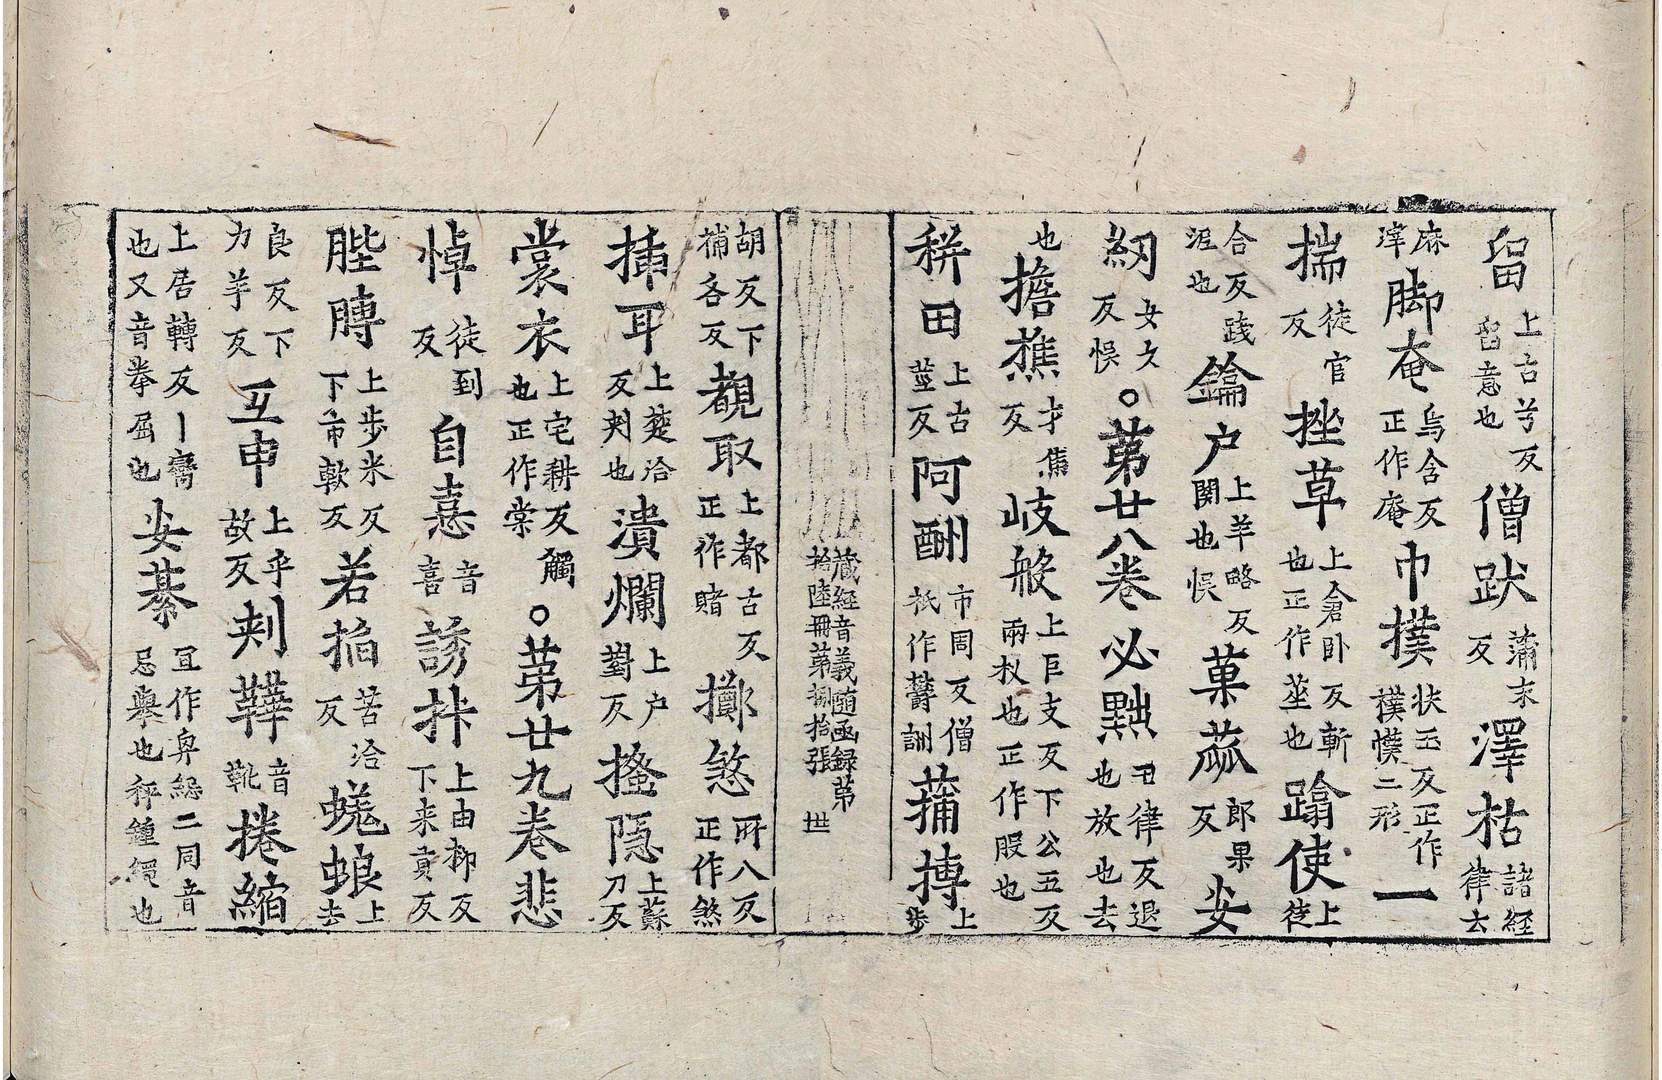 留上古兮反留意也僧跋蒲末反澤枯諸經律去
麻滓脚奄烏含反正作庵巾撲扶玉反正作樸㦬二形一
揣徒官反挫草上倉卧反斬也正作莝也蹹使上徒
合反踐渥也鑰户上羊略反門關也悞菓蓏郎果反安
紉女文反悞。第廿八卷必黜丑律反退也放也去
也擔樵才焦反岐般上巨支反下公五反兩杈也正作股也
秼田上古莖反阿酬市周反僧祇作譸詶蒱摶上步
藏經音義隨函録第拾陸冊第捌拾張 世
胡反下補各反覩取上都古反正作睹擲煞所八反正作煞
插耳上楚洽反刾也潰爛上户對反搔隱上蘇刀反
裳衣上宅耕反觸也正作棠。第廿九卷悲
悼徒到反自憙音喜誘㧊上由柳反下来貢反
䏶膞上步米反下市軟反若掐苦洽反蜣蜋上去
良反下力羊反互申上乎故反刾鞾音靴捲縮
上居轉反丨齋也又音拳屈也安綦宜作舁緦二同音忌舉也秤鍾繩也